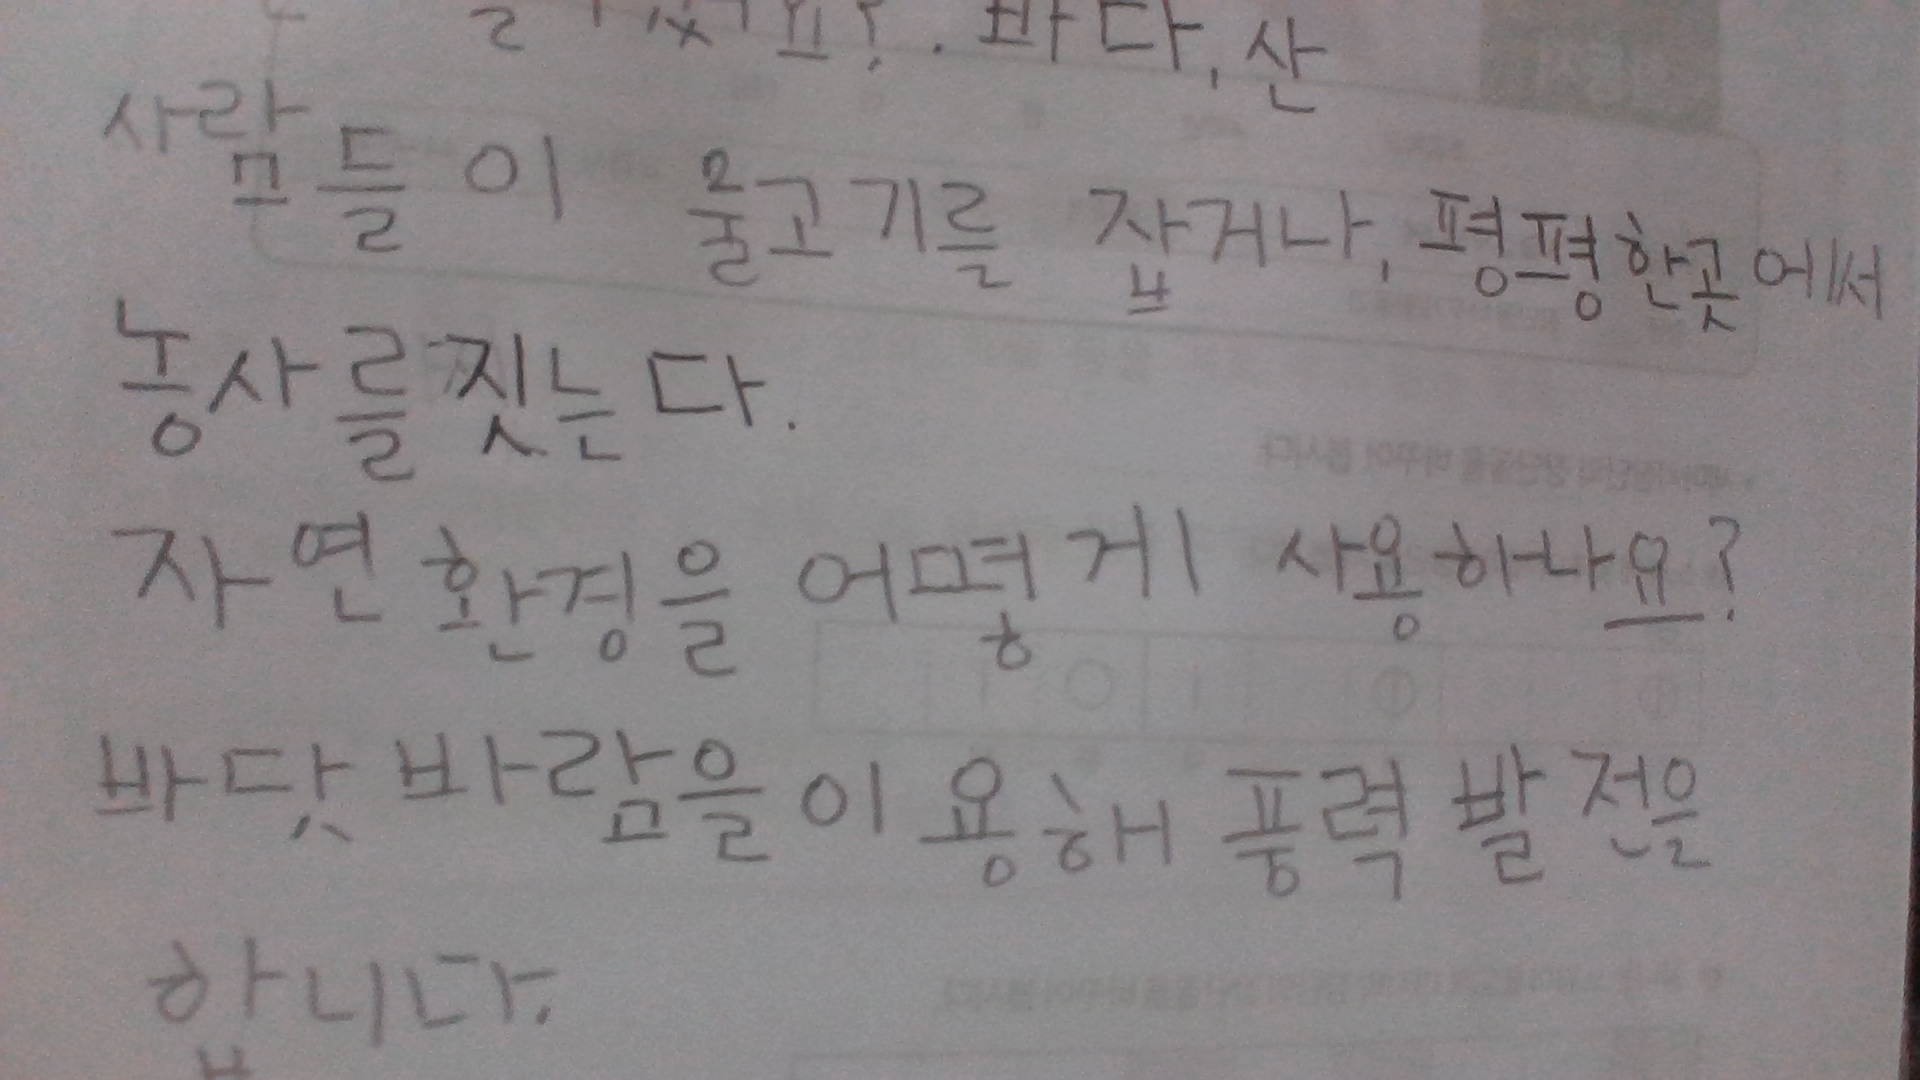 요?. 바다, 산
사람들이 물고기를 잡거나, 평평한곳에서
농사를짓는다.
자연환경을 어떻게 사용하나요?
바닷바람을이용해 풍력 발전을
합니다.